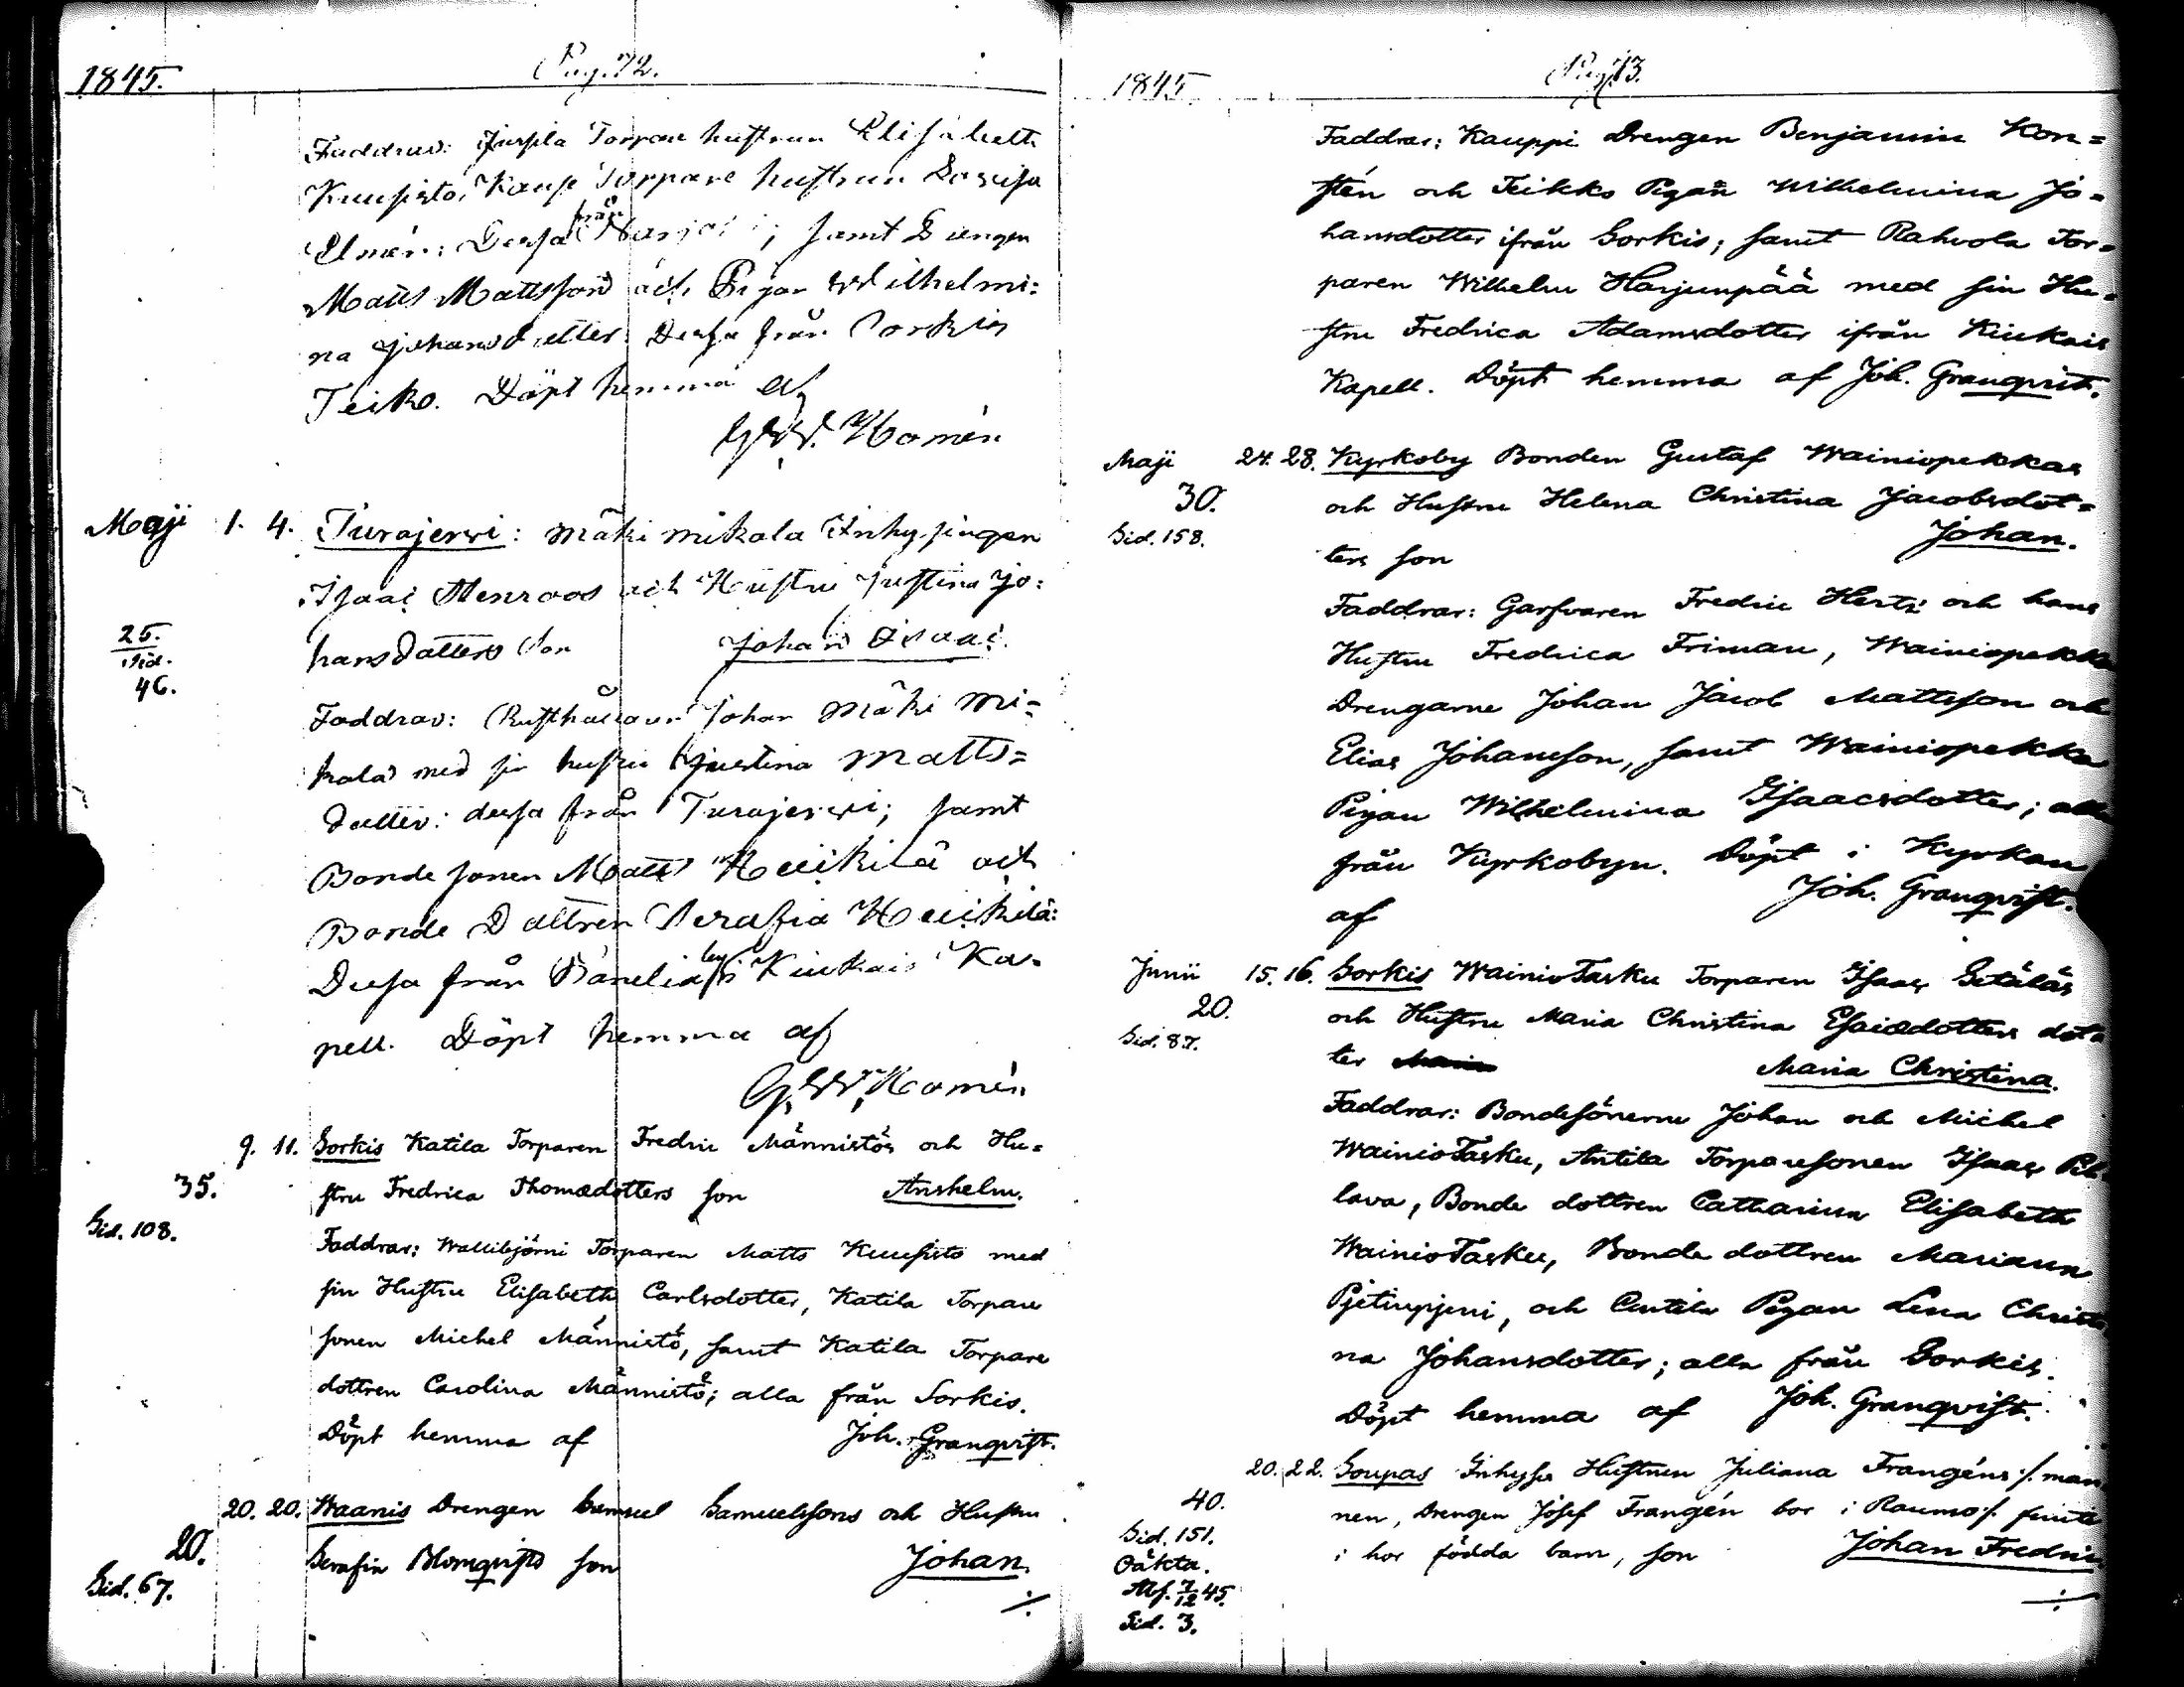 1845. Pag. 72.
Faddrar: Torpare hustrun Elisabeth
Kuusisto, Torpare hustrun Lovisa
Elmén: Dessa från samt Drengen
Matts Mattsson och Pigan Wilhelmi:
na Johansdotter: Dessa från Sorkis
Teiko. Döpt hemma af
G. W. Homén
Maji 1. 4. Turajerwi: Mäki Mikola Inhysingen
Isaac Stenroos och Hustru Justina Jo:
25. hansdotters Son Johan Isaac.
Sid.
46.
Faddrar: Rusthållaren Johan Mäki Mi=
kola med sin hustru Justina Matts=
dotter: dessa från Turajerwi; samt
Bonde sonen Matts Heickilä och
Bonde Dottren Serafia Heickilä:
Dessa från Panelia by i Kiukais Ka=
pell. Döpt hemma af
G. W. Homén
9. 11. Sorkis Katila Torparen Fredric Männistös och Hu=
35. stru Fredrica Thomædotters son Anshelm.
Sid. 108.
Faddrar: Wallibjörni Torparen Matts Kuusisto med
sin Hustru Elisabeth Carlsdotter, Katila Torpare
sonen Michel Männistö, samt Katila Torpare
dottren Carolina Männistö; alla från Sorkis.
Döpt hemma af Joh. Granqvist.
20. 20. Waanis Drengen Samuel Samuelssons och Hustru
20. Serafia Blomqvists son Johan.
Sid. 67. ./.
1845 Pag. 73.
Faddrar: Kauppi Drengen Benjamin Kon=
stén och Teikko Pigan Wilhelmina Jo=
hansdotter ifrån Sorkis; samt Rahvola Tor=
paren Wilhelm Harjunpää med sin Hu=
stru Fredrica Adamsdotter ifrån Kiukais
Kapell. Döpt hemma af Joh. Granqvist.
Maji 24. 28. Kyrkoby Bonden Gustaf Wainiopekkas
30. och Hustru Helena Christina Jacobsdot=
Sid. 158. ters son Johan.
Faddrar: Garfvaren Fredric Hertz och hans
Hustru Fredrica Friman, Wainiopekka
Drengarne Johan Jacob Mattsson och
Elias Johansson, samt Wainiopekka
Pigan Wilhelmina Isaacsdotter; alla
från Kyrkobyn. Döpt i Kyrkan
af Joh. Granqvist.
Junii 15. 16. Sorkis WainioTasku Torparen Isaac Setäläs
20. och Hustru Maria Christina Esaiædotters dot=
Sid. 87. ter Maria Christina.
Faddrar: Bondesönerne Johan och Michel
WainioTasku, Antila Torparesonen Isaac Pil
lava, Bonde dottren Catharina Elisabeth
WainioTasku, Bonde dottren Mariana
och Antila Pigan Lena Christi
na Johansdotter; alla från Sorkis.
Döpt hemma af Joh. Granqvist.
20. 22. Soupas Inhyses Hustrun Juliana Frangéns /: man
40. nen, Drengen Josef Frangén bor i Raumo :/
Sid. 151. i hor födda barn, son Johan Fredric
Oäkta.
Afl. 7/12 45.
Sid. 3. ./.